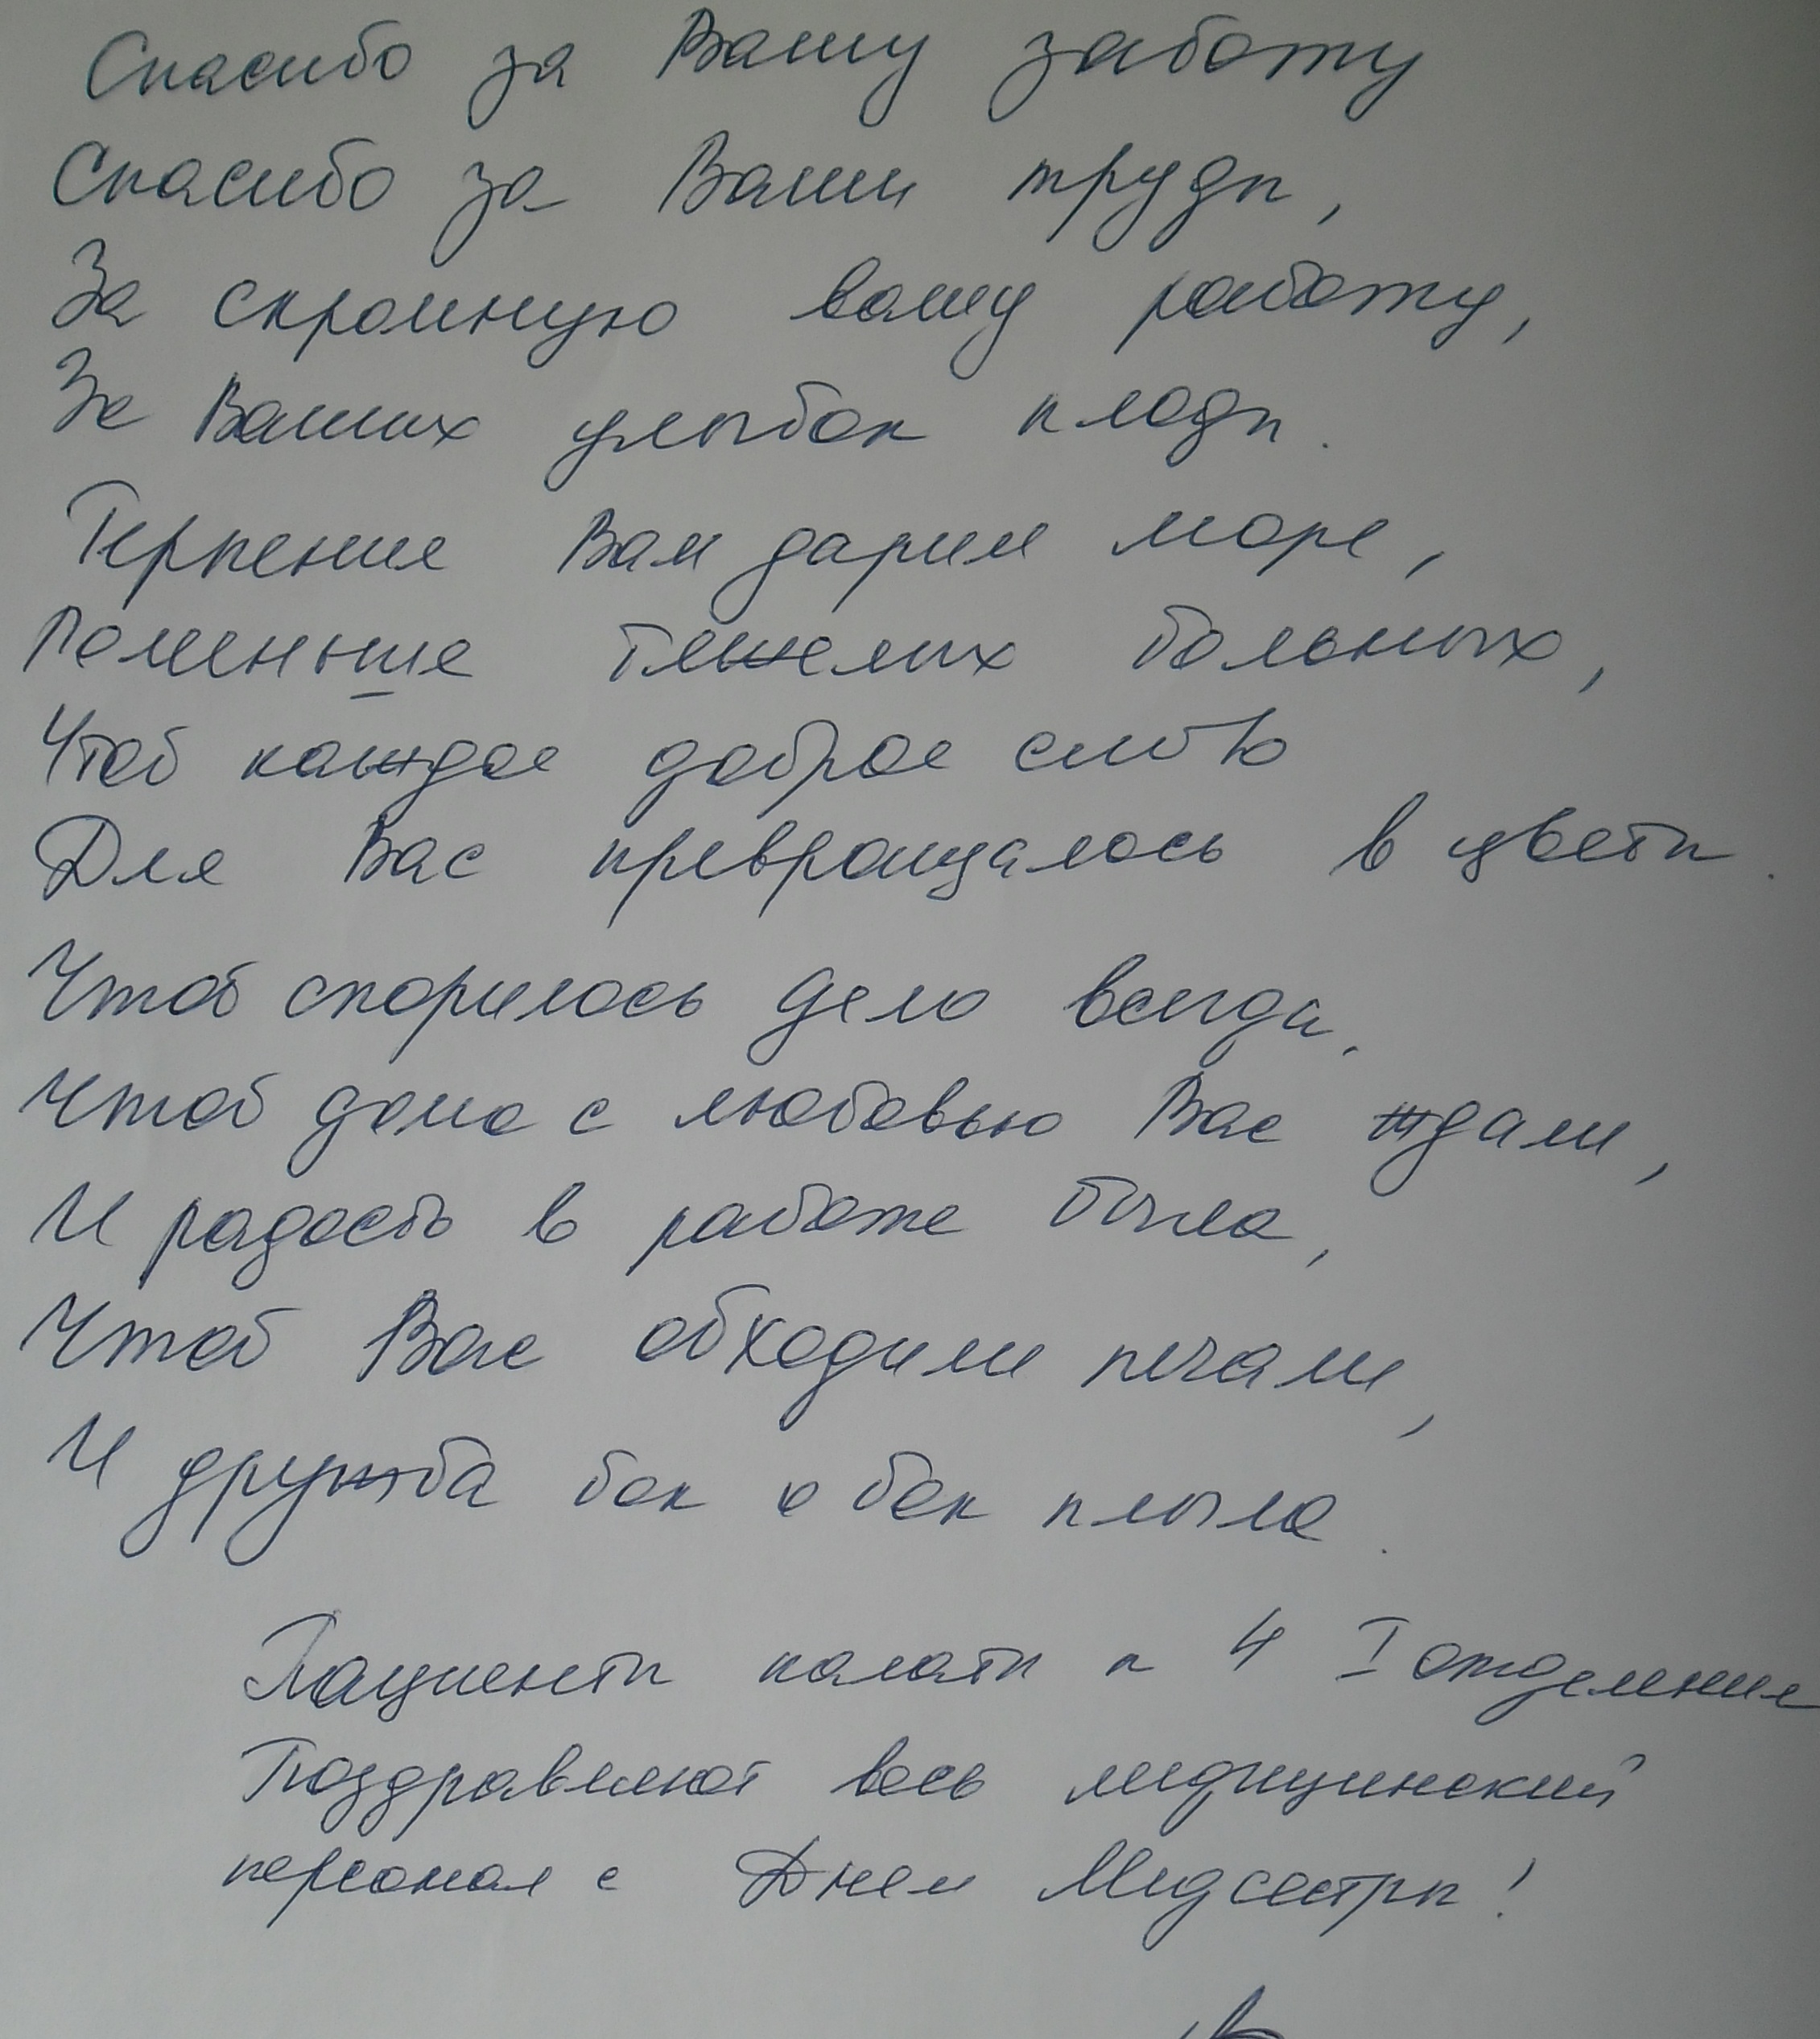 Спасибо за Вашу заботу
Спасибо за Ваши труды,
За скромную вашу работу,
За Ваших улыбок плоды.
Терпение Вам дарим море,
Поменьше тяжелых больных,
Чтоб каждое доброе слово
Для Вас превращалось в цветы.
Чтоб спорилось дело всегда,
Чтоб дома с любовью Вас ждали,
И радость в работе была,
Чтоб Вас обходили печали,
И дружба бок о бок плыла.
Пациенты палаты н 4 I отделение
Поздравляют весь медицинский
персонал с Днем Медсестры!